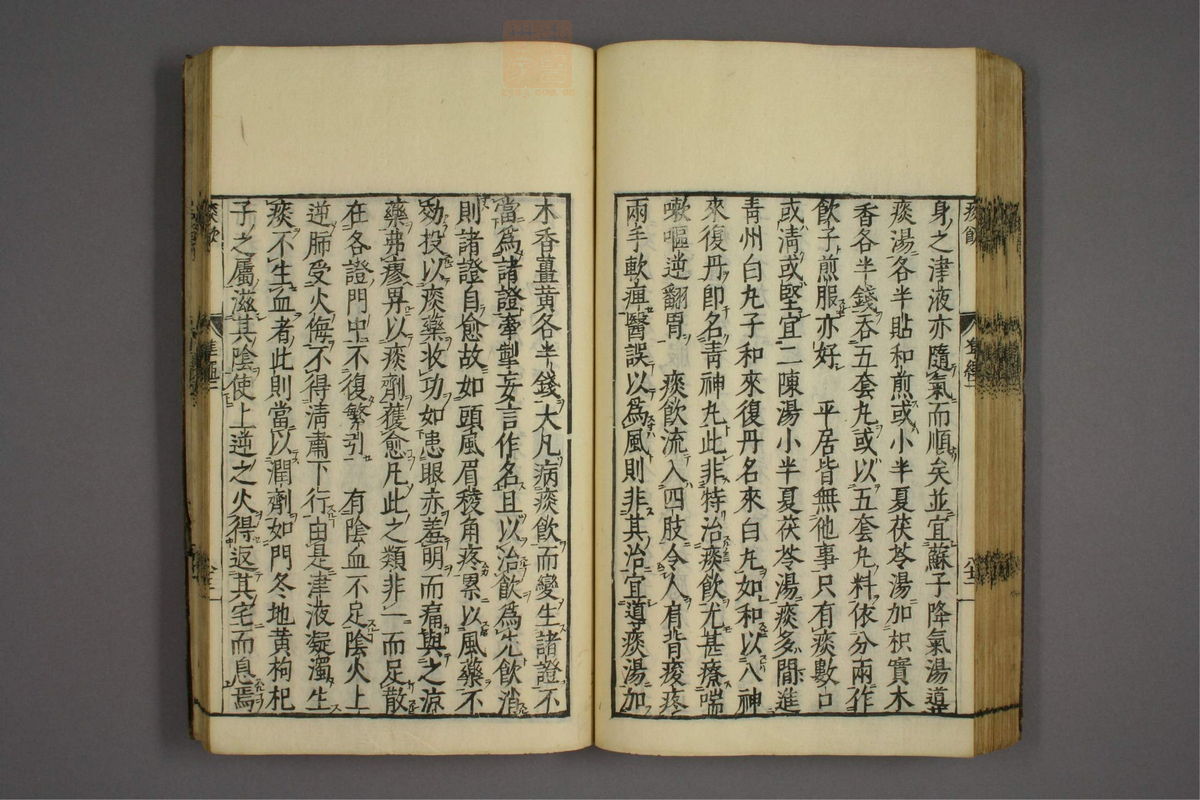 身之津液亦隨氣而順矣並宜蘇子降氣湯導
痰湯各半貼和煎或小半夏茯苓湯加枳實木
香各半錢吞五套丸或以五套丸料依分兩作
飲子煎服亦好　平居皆無他事只有痰數口
或淸或堅宜二陳湯小半夏茯苓湯痰多間進
靑州白丸子和來復丹名來白丸如和以八神
來復丹卽名靑神丸此非特治痰飲尤甚療喘
嗽嘔逆翻胃　痰飲流入四肢令人肩背痠疼
兩手軟痺醫誤以爲風則非其治宜導痰湯加
木香薑黃各半錢大凡病痰飲而變生諸證不
當爲諸證牽掣妄言作名且以治飲爲先飲消
則諸證自愈故如頭風眉稜角疼累以風藥不
効投以痰藥收功如患眼赤羞明而痛與之涼
藥弗瘳畀以痰劑獲愈凡此之類非一而足散
在各證門中不復繁引　有陰血不足陰火上
逆肺受火侮不得淸肅下行由是津液凝濁生
痰不生血者此則當以潤劑如門冬地黃枸杞
子之屬滋其陰使上逆之火得返其宅而息焉